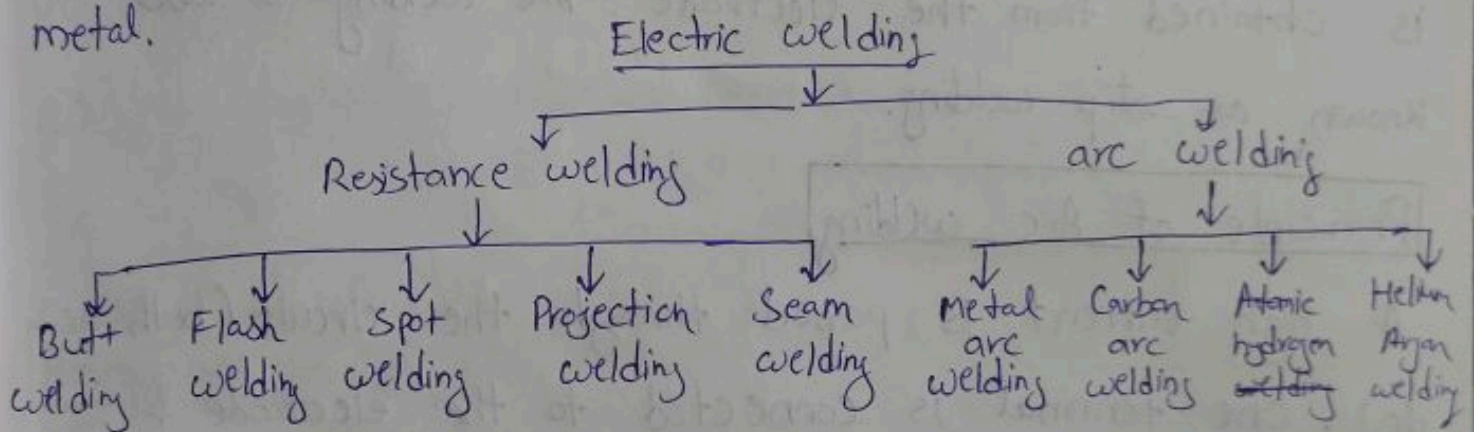 metal.
Electric welding
Resistance welding
arc welding
Butt welding
Flash welding
Spot welding
Projection welding
Seam welding
Metal arc welding
Carbon arc welding
Atomic hydrogen welding
Helium Argon welding